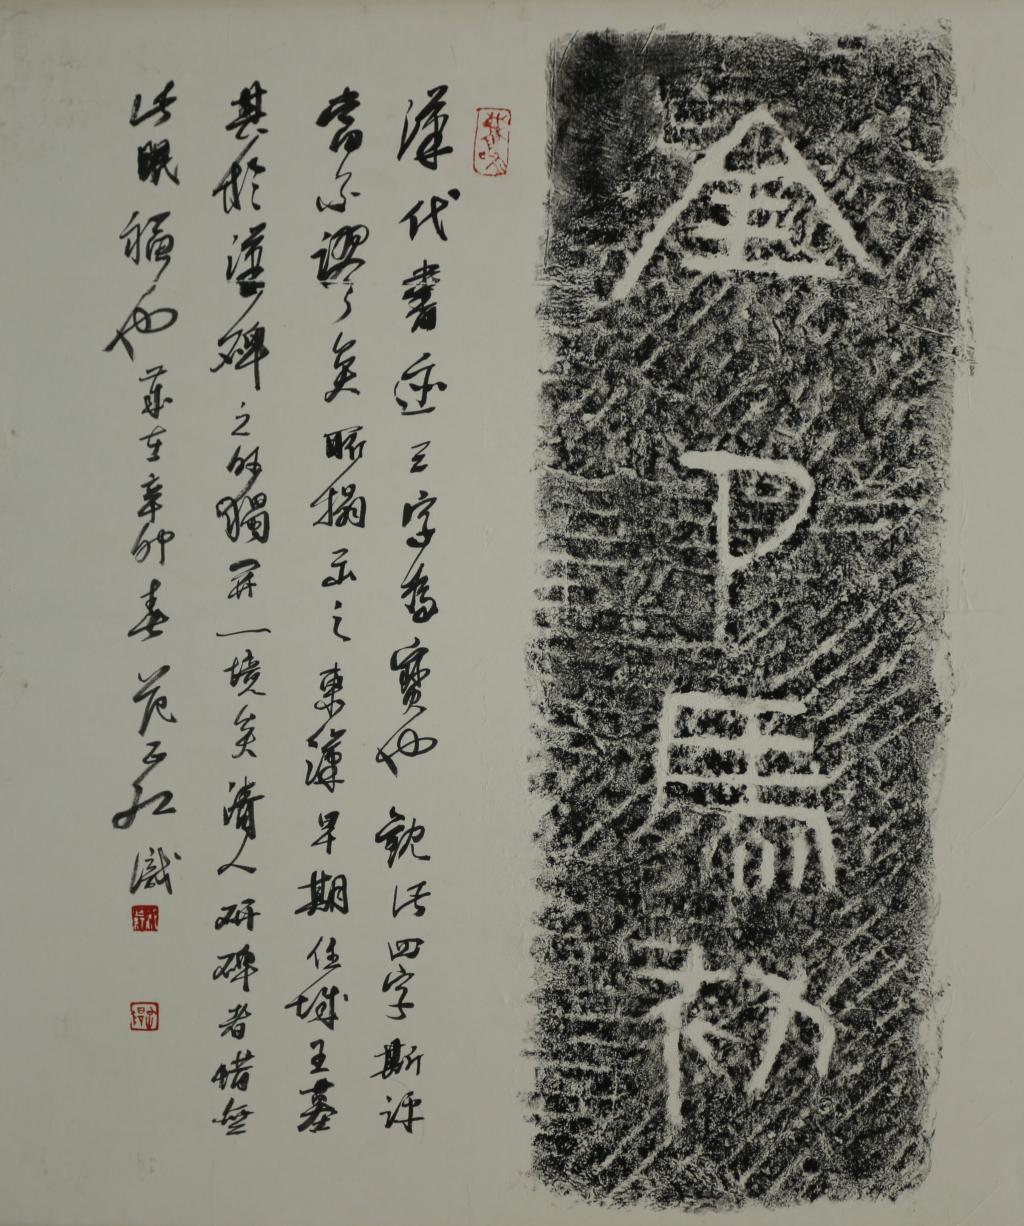 金卩馬初
漢代書迹三字為寶也觀此四字斯評
當亦謬矣搨出之東漢早期任城王墓
其於漢碑之外獨開一境矣清人研碑者惜無
此眼福也歲在辛卯春范正紅識